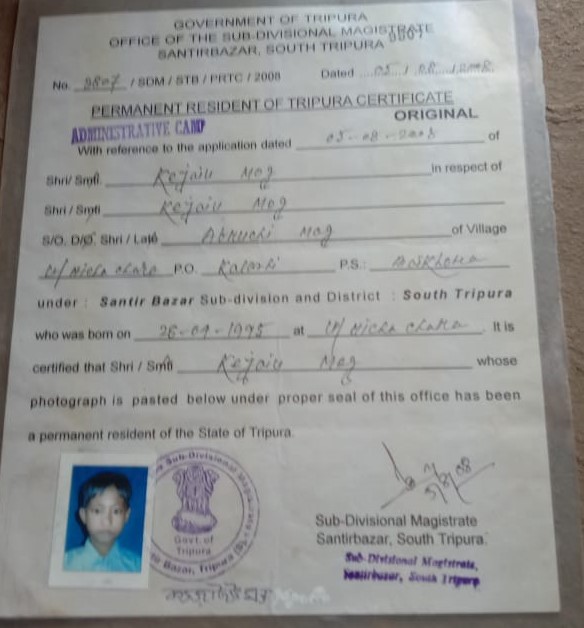 GOVERNMENT OF TRIPURA
OFFICE OF THE SUB-DIVISIONAL MAGISTRATE
SANTIRBAZAR, SOUTH TRIPURA
No. 9807 / SDM / STB / PRTC / 2008 Dated 05 / 08 / 2008
PERMANENT RESIDENT OF TRIPURA CERTIFICATE
ORIGINAL
ADMINISTRATIVE CAMP
With reference to the application dated 05-08-2008 of
Shri/Smti. Kejaiu Mog in respect of
Shri / Smti Kejaiu Mog
S/O, D/O, Shri / Late Mog of Village
P.O. P.S.:
under : Santir Bazar Sub-division and District : South Tripura
who was born on 26-09-1995 at It is
certified that Shri / Smti Kejaiu Mog whose
photograph is pasted below under proper seal of this office has been
a permanent resident of the State of Tripura.
Govt. of
Tripura
Sub-Divisional Magistrate
Santirbazar, South Tripura.
Sub-Divisional Magistrate,
Santirbazar, South Tripura